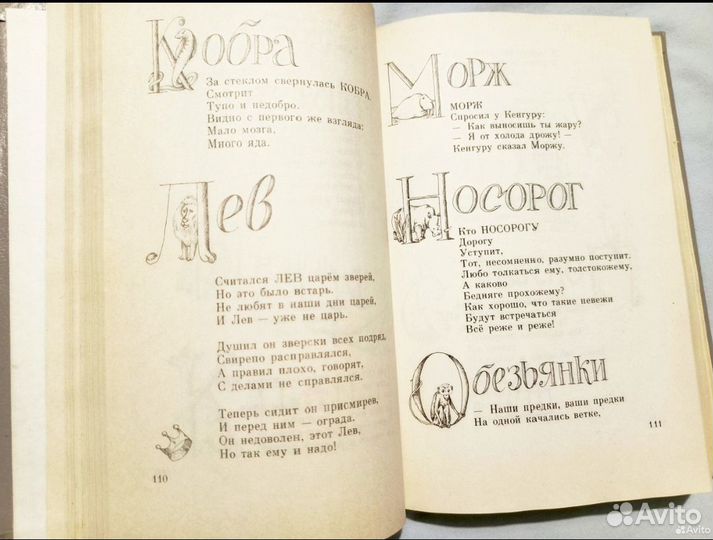 Кобра
За стеклом свернулась КОБРА.
Смотрит
Тупо и недобро.
Видно с первого же взгляда:
Мало мозга,
Много яда.
Лев
Считался ЛЕВ царём зверей,
Но это было встарь.
Не любят в наши дни царей,
И Лев — уже не царь.
Душил он зверски всех подряд,
Свирепо расправлялся,
А правил плохо, говорят,
С делами не справлялся.
Теперь сидит он присмирев,
И перед ним — ограда.
Он недоволен, этот Лев,
Но так ему и надо!
110
Морж
МОРЖ
Спросил у Кенгуру:
— Как выносишь ты жару?
— Я от холода дрожу! —
Кенгуру сказал Моржу.
Носорог
Кто НОСОРОГУ
Дорогу
Уступит,
Тот, несомненно, разумно поступит.
Любо толкаться ему, толстокожему,
А каково
Бедняге прохожему?
Как хорошо, что такие невежи
Будут встречаться
Всё реже и реже!
Обезьянки
— Наши предки, ваши предки
На одной качались ветке,
111
Avito
Avito